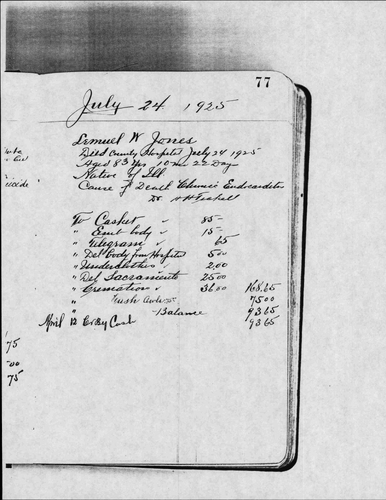 77
July 24 1925
Lemuel W Jones
Died County Hospital July 24 1925
Aged 83 Yrs 10 m 22 Day
Native of Ill
Cause of Death Chronic Endocarditis
Dr
ecide
To Casket " 85-
" Emb body " 15-
" Telegram " 65
" Del body from Hospital 500
" Underclothes " 2.00
" Del Sacramento 2500
" Cremation " 3600 168.65
" 7500
" Balance 9365
April 12 By Cash 9365
75
-00
75